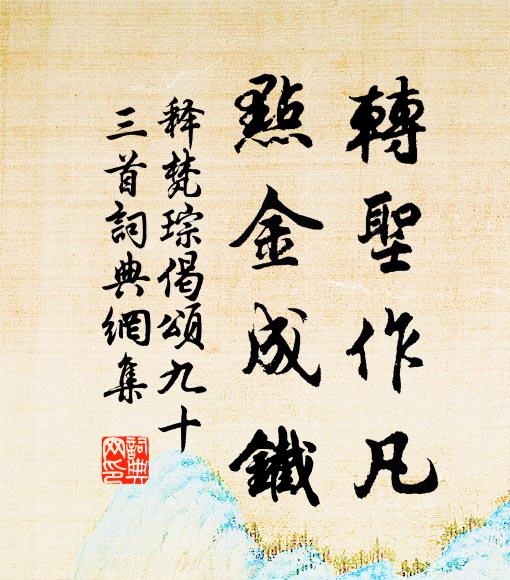 轉聖作凡
點金成鐵
释梵琮偈頌九十
三首詞典網集
詞典网印